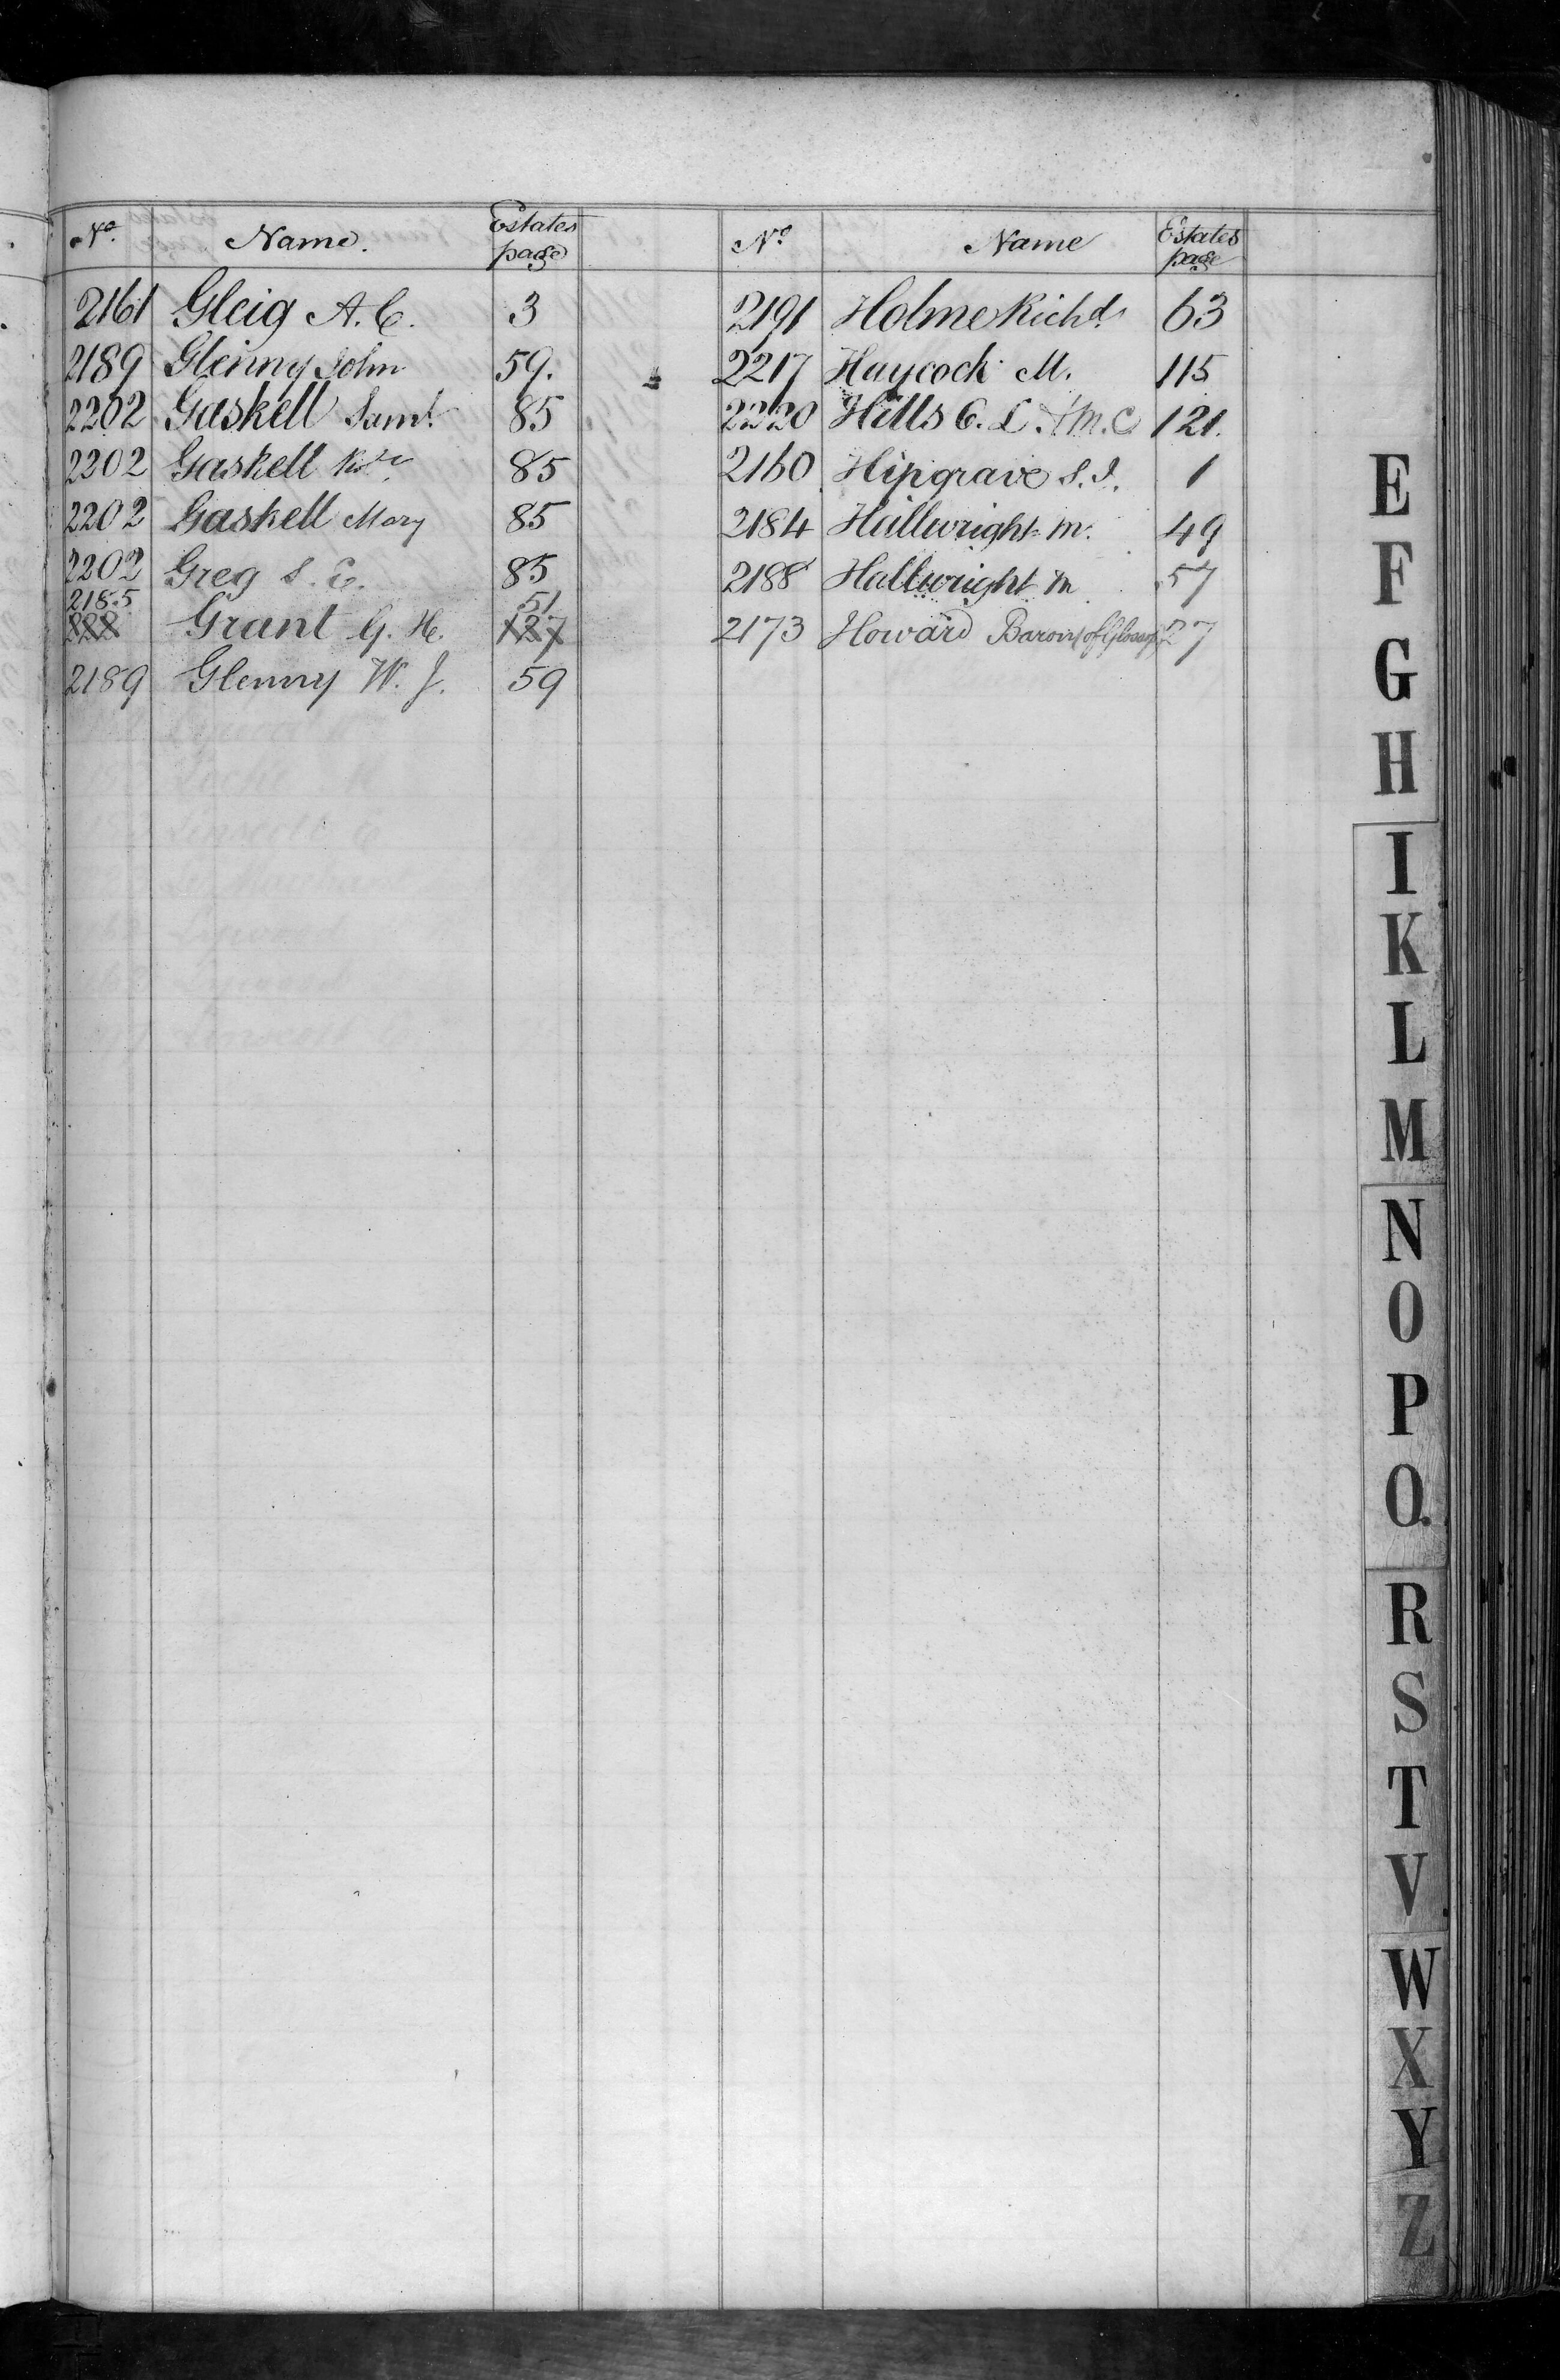 No. Name. Estates page
2161 Gleig A. C. 3
2189 Glenny John 59.
2202 Gaskell Saml. 85
2202 Gaskell 85
2202 Gaskell Mary 85
2202 Greg S. E. 85
2185 51
Grant G. H. 127
2189 Glenny W. J. 59
No. Name Estates page
2191 Holme Richd. 63
2217 Haycock M. 115
2220 Hills C. L. & M. C 121.
2160 Hipgrave S. J. 1
2184 Hallwright M. 49
2188 Hallwright M 57
2173 Howard Baron (of Glossop) 27
E
F
G
H
I
K
L
M
N
O
P
Q.
R
S
T
V
W
X
Y
Z